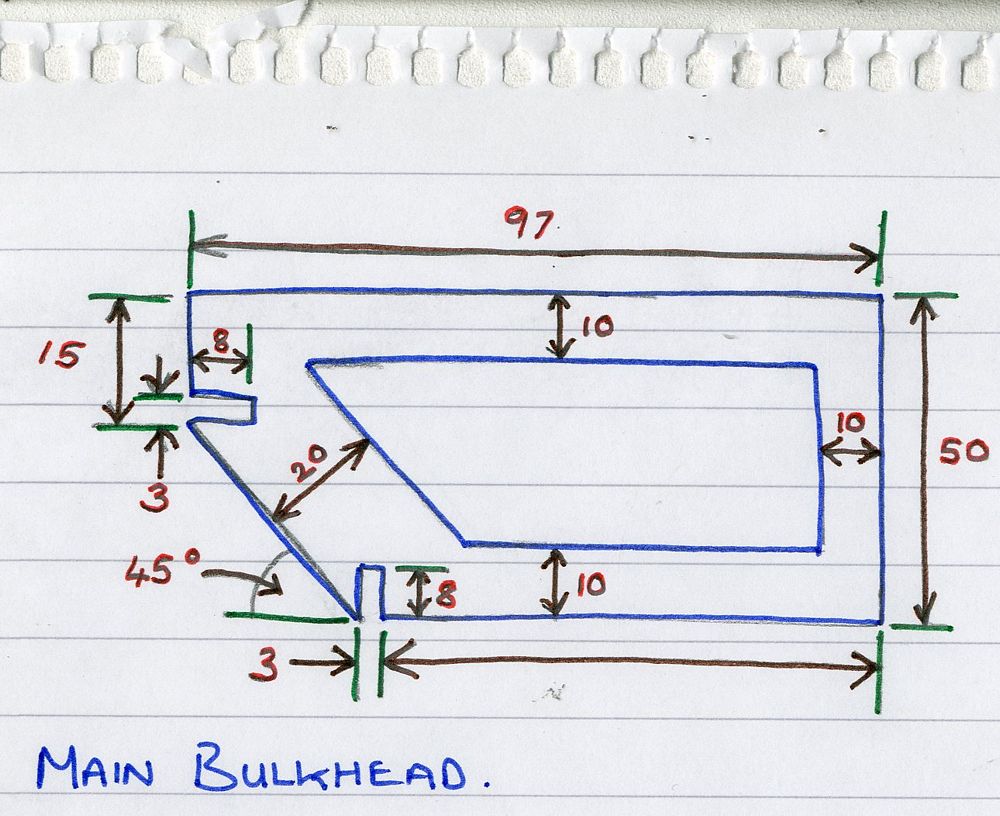 97
10
8
15
10
50
20
3
45°
8
10
3
MAIN BULKHEAD.